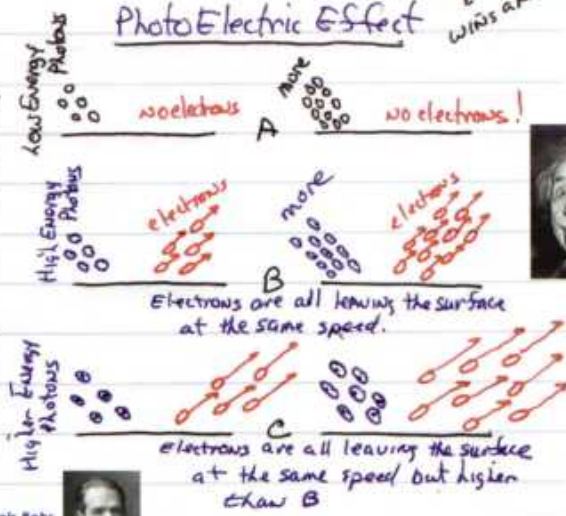 PhotoElectric Effect
wins
Low Energy
Photons
no electrons
A
more
no electrons!
High Energy
Photons
electrons
B
more
electrons
Electrons are all leaving the surface
at the same speed.
Higher Energy
Photons
C
electrons are all leaving the surface
at the same speed but higher
than B